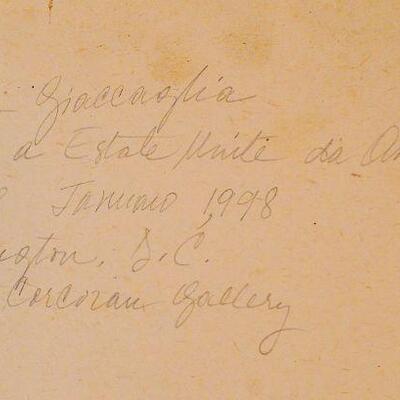 Giaccaglia
a Estate Unite da
Januaio 1998
ngton, D.C.
Corcoran Gallery